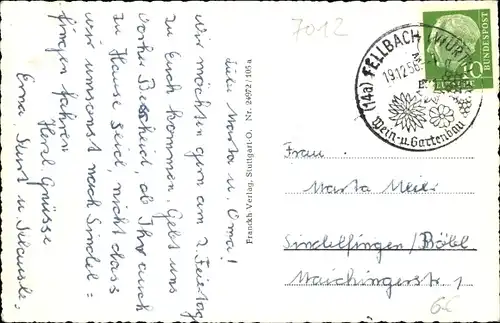 7012
Liebe Marta u. Oma!
Wir möchten gern am 2. Feiertag
zu Euch kommen. Gebt uns
vorher Bescheid, ob Ihr auch
zu Hause seid, nicht dass
wir umsonst nach Sindel=
fingen fahren.
Herzl. Grüsse
Erna, Kurt u.
Franckh Verlag, Stuttgart-O. Nr. 26972/105a
(14a) FELLBACH (WÜRTT
19.12.56
Wein-u. Gartenbau
DEUTSCHE BUNDESPOST
10
Frau
Marta Meier
Sindelfingen/Böbl
Maichingerstr. 1
6€